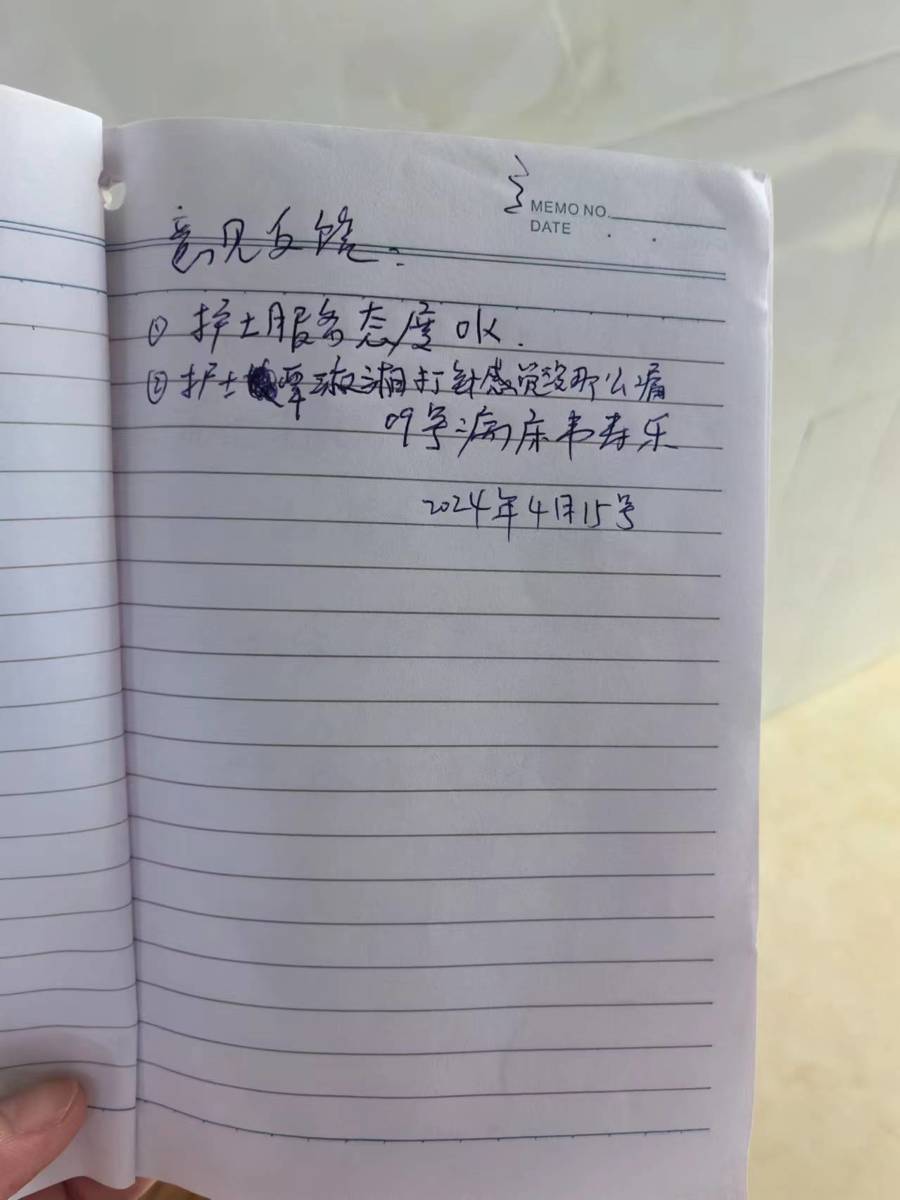 MEMO NO.
DATE
意见反馈:
① 护士服务态度OK.
② 护士覃淑湘打针感觉没那么痛
09号病床韦寿乐
2024年4月15号